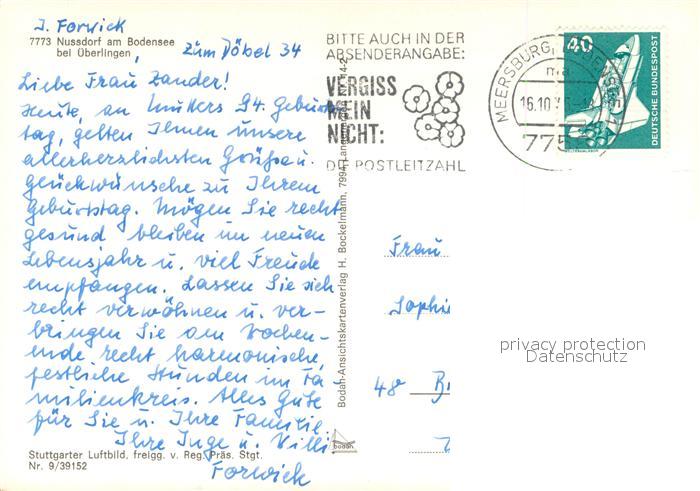 J. Forwick
7773 Nussdorf am Bodensee
bei Überlingen, Zum Döbel 34
Liebe Frau Zander!
Heute, an Mutters 94. Geburts
tag, gelten Ihnen unsere
allerherzlichsten Grüße u.
Glückwünsche zu Ihrem
Geburtstag. Mögen Sie recht
gesund bleiben im neuen
Lebensjahr u. viel Freude
empfangen. Lassen Sie sich
recht verwöhnen u. ver-
bringen Sie am Wochen-
ende recht harmonische,
festliche Stunden im Fa-
milienkreis. Alles Gute
für Sie u. Ihre Familie
Ihre Inge u. Willi
Forwick
Stuttgarter Luftbild, freigg. v. Reg. Präs. Stgt.
Nr. 9/39152
Bodan-Ansichtskartenverlag H. Bockelmann, 7994
bodan
BITTE AUCH IN DER
ABSENDERANGABE:
VERGISS
MEIN
NICHT:
DIE POSTLEITZAHL
MEERSBURG,
16.10
775
40
DEUTSCHE BUNDESPOST
Frau
Sophie
48 Bi
privacy protection
Datenschutz